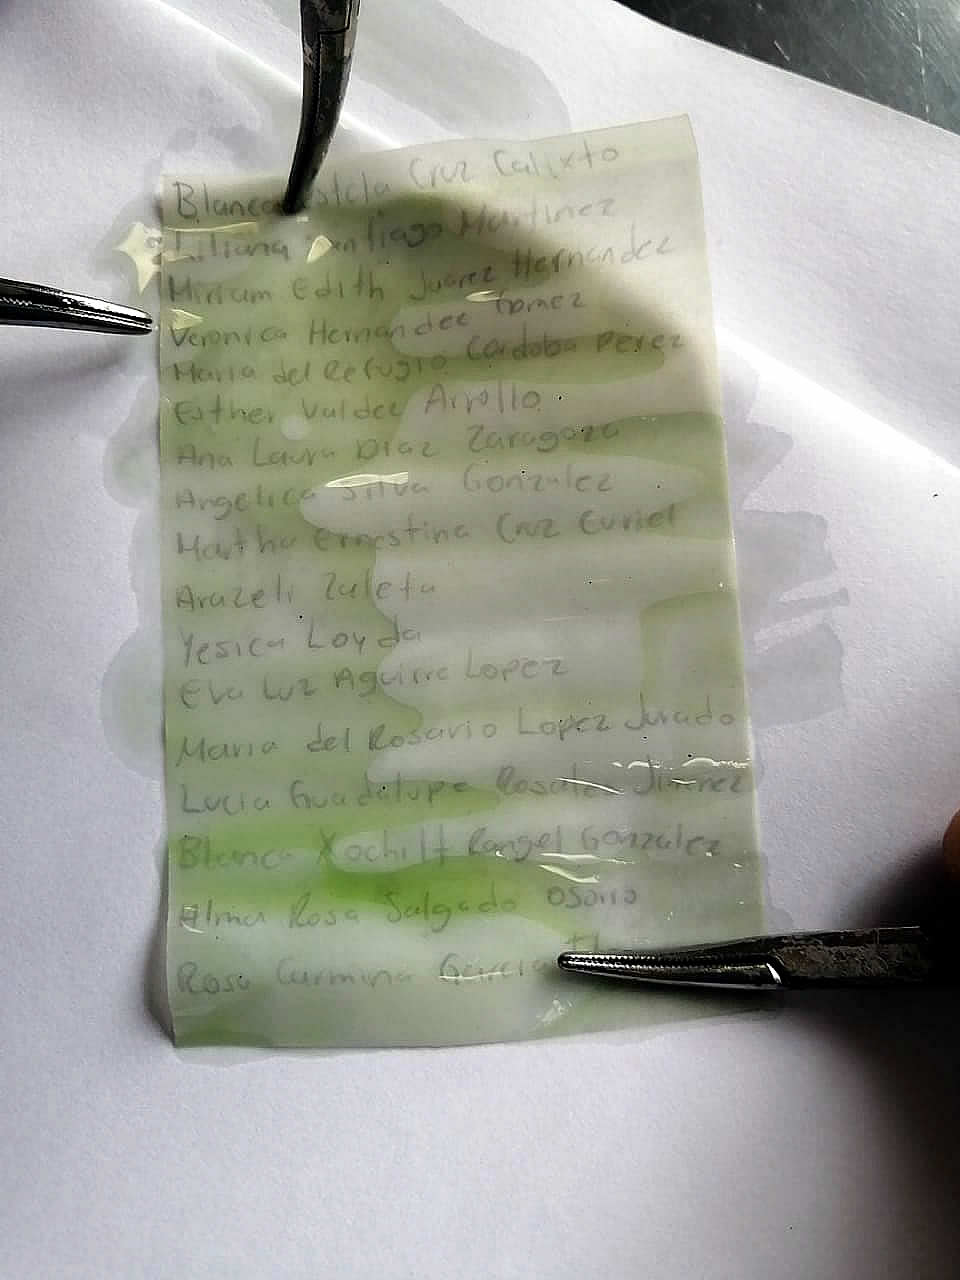 Blanca Estela Cruz Calixto
Liliana Santiago Martinez
Miriam Edith Juarez Hernandez
Veronica Hernandez Gomez
Maria del Refugio Cordoba Perez
Esther Valdez Arrollo
Ana Laura Diaz Zaragoza
Angelica Silva Gonzalez
Martha Ernestina Cruz Curiel
Arazeli Zuleta
Yesica Loyda
Eva Luz Aguirre Lopez
Maria del Rosario Lopez Jurado
Lucia Guadalupe Rosales Jimenez
Blanca Xochilt Rangel Gonzalez
Alma Rosa Salgado Osorio
Rosa Carmina Garcia